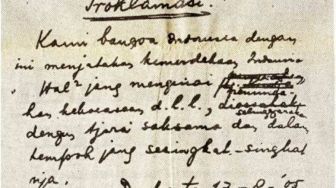 Proklamasi.
Kami bangsa Indonesia dengan
ini menjatakan kemerdekaan Indonesia
Hal² jang mengenai peminda-
han kekoeasaan d.l.l., diselenggarakan
dengan tjara saksama dan dalam
tempoh jang sesingkat-singkat
nja.
Djakarta 17-8-'05